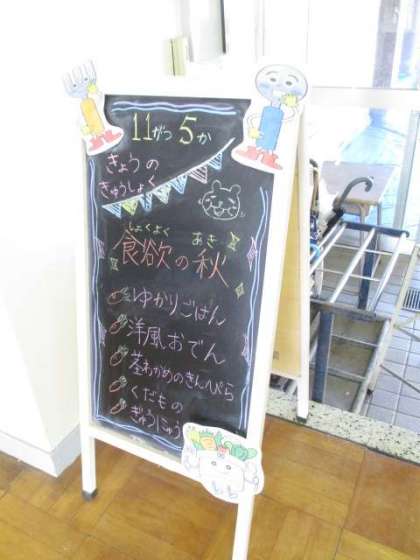 11がつ 5か
きょうの
きゅうしょく
しょくよく あき
食欲の秋
ゆかりごはん
洋風おでん
茎わかめのきんぺら
くだもの
ぎゅうにゅう